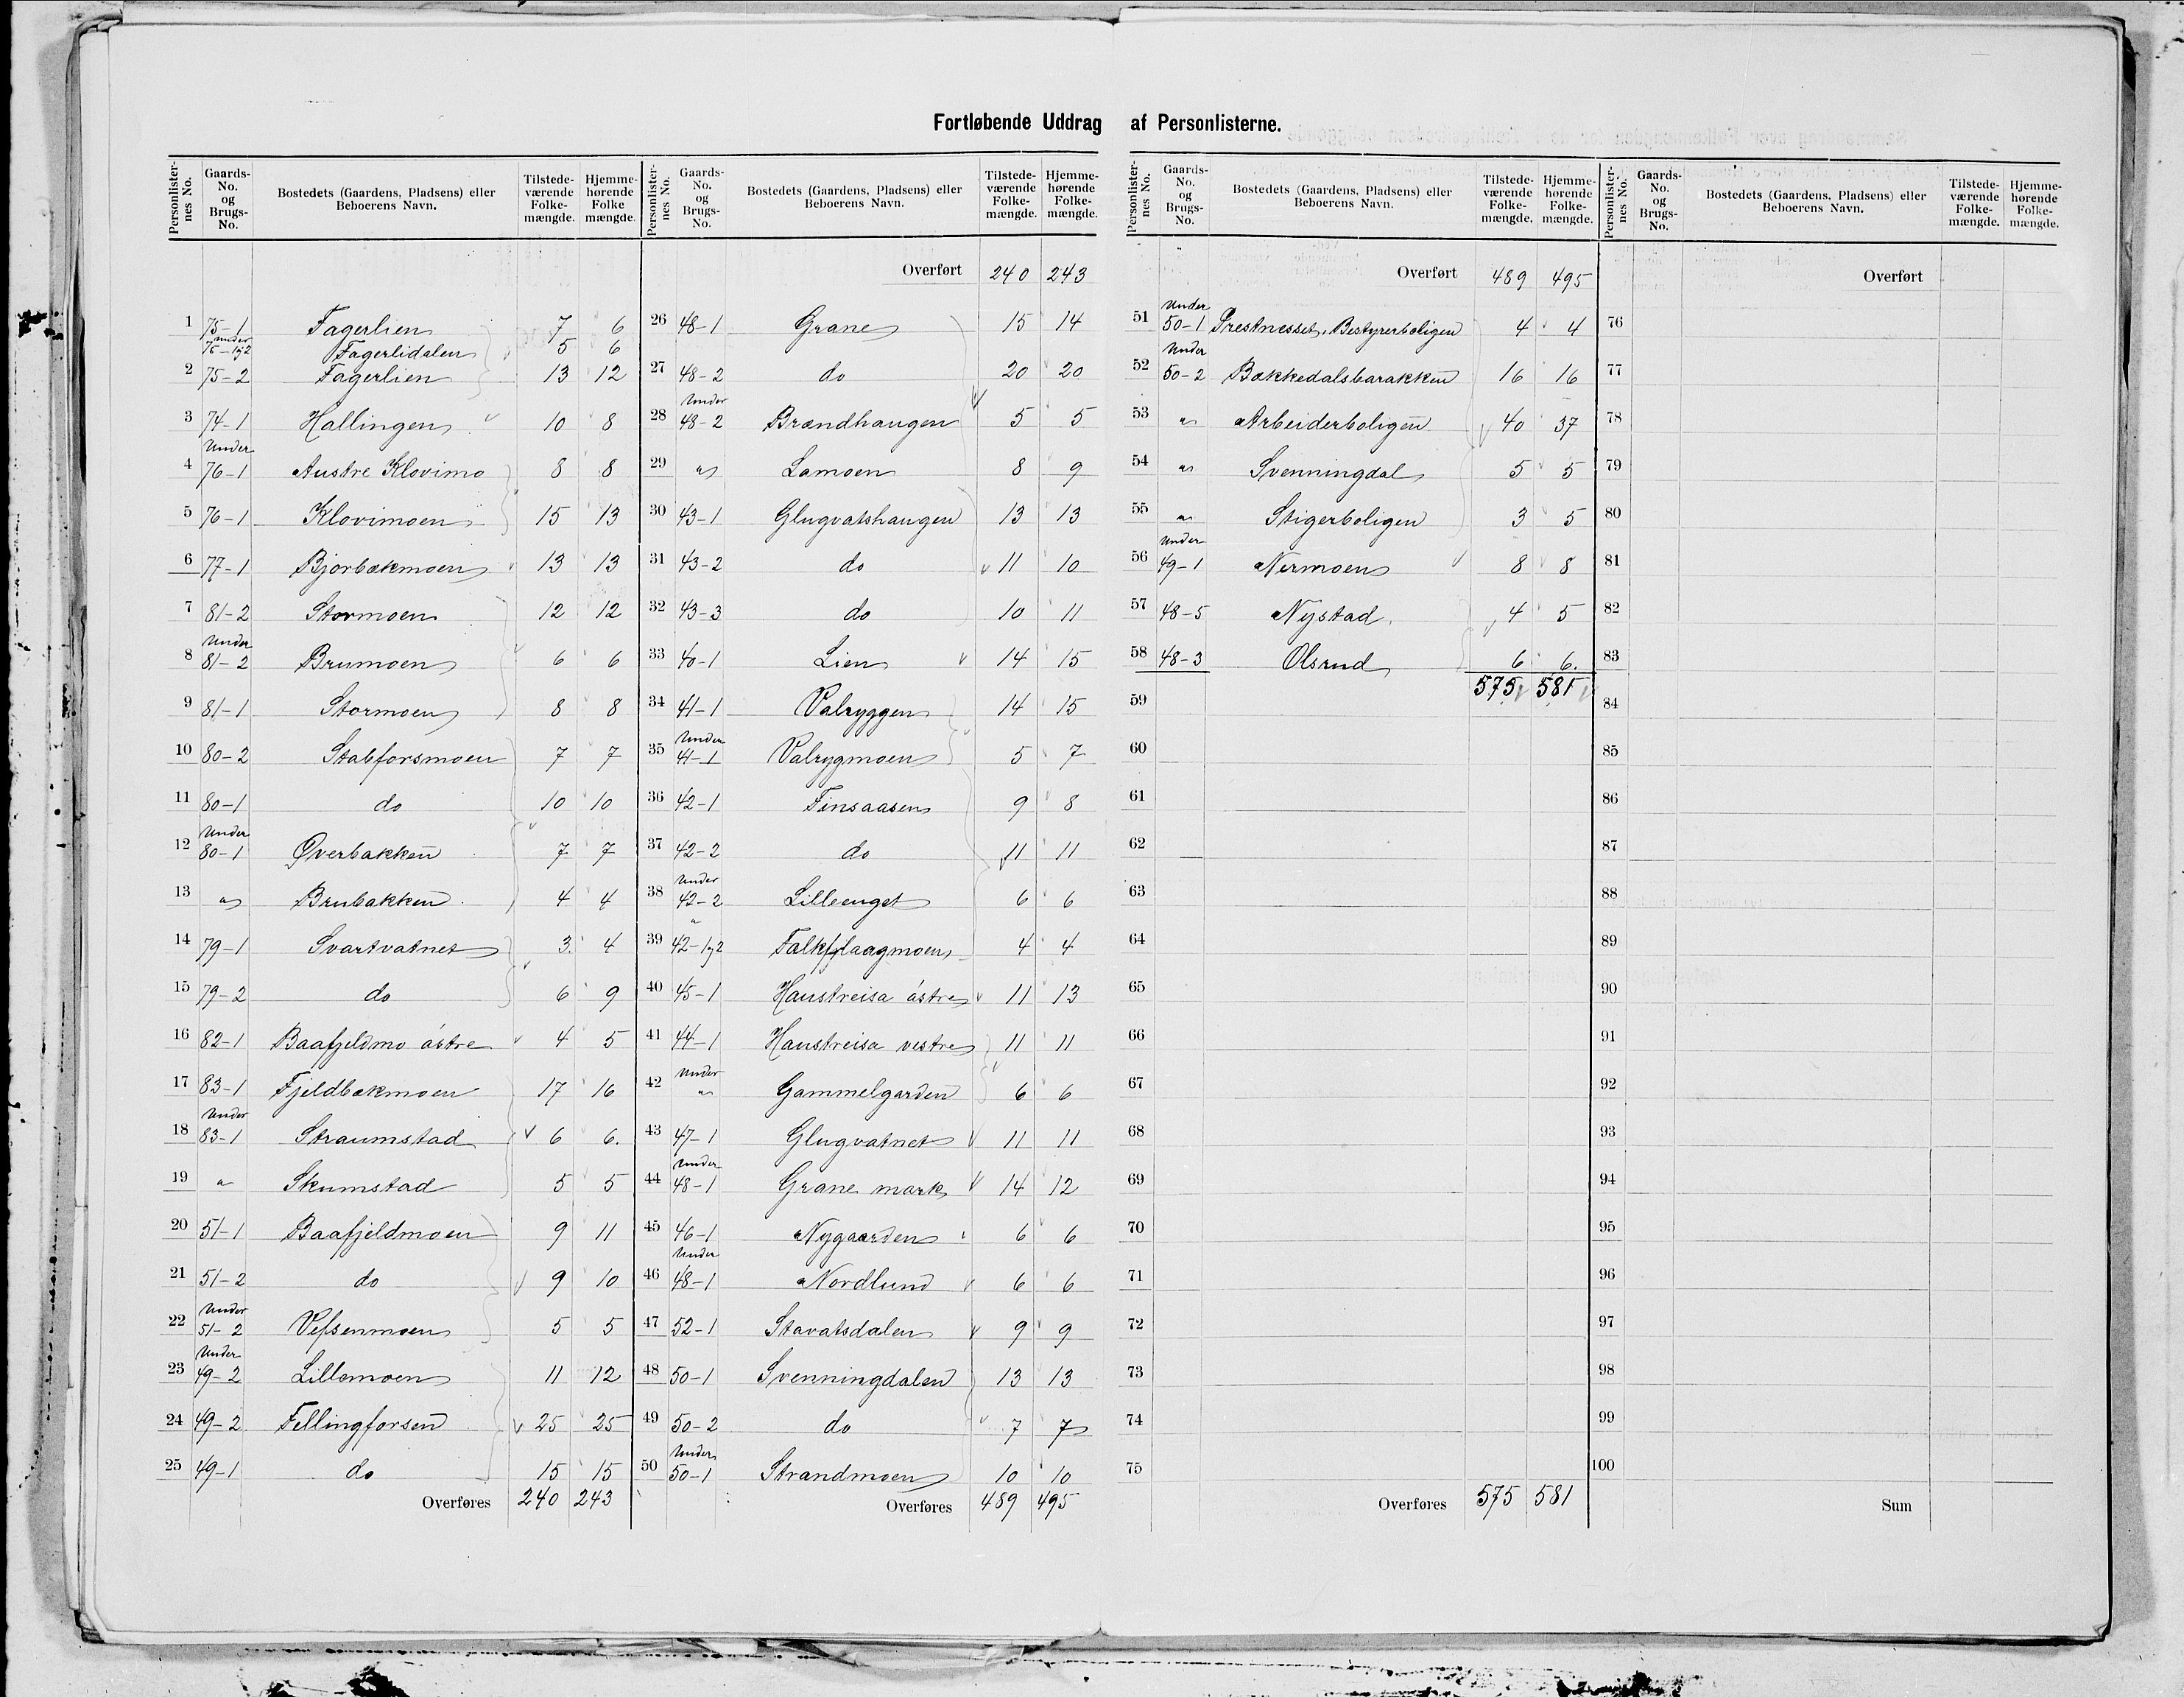 Fortløbende Uddrag af Personlisterne.
Personlister-nes No. | Gaards-No. og Brugs-No. | Bostedets (Gaardens, Pladsens) eller Beboerens Navn. | Tilstede-værende Folke-mængde. | Hjemme-hørende Folke mængde.
1 75-1 Fagerlien 7 6
under 75-1y2 Fagerlidalen 5 6
2 75-2 Fagerlien 13 12
3 74-1 Hallingen 10 8
4 Under 76-1 Austre Klovimo 8 8
5 76-1 Klovimoen 15 13
6 77-1 Bjorbækmoen 13 13
7 81-2 Stormoen 12 12
8 Under 81-2 Brumoen 6 6
9 81-1 Stormoen 8 8
10 80-2 Stabforsmoen 7 7
11 80-1 do 10 10
12 Under 80-1 Øverbakken 7 7
13 " Brubakken 4 4
14 79-1 Svartvatnet 3 4
15 79-2 do 6 9
16 82-1 Baafjeldmo østre 4 5
17 83-1 Fjeldbækmoen 17 16
18 Under 83-1 Straumstad 6 6.
19 " Skumstad 5 5
20 51-1 Baafjeldmoen 9 11
21 51-2 do 9 10
22 Under 51-2 Vefsenmoen 5 5
23 Under 49-2 Lillemoen 11 12
24 49-2 Fellingforsen 25 25
25 49-1 do 15 15
Overføres 240 243
Personlister-nes No. | Gaards-No. og Brugs-No. | Bostedets (Gaardens, Pladsens) eller Beboerens Navn. | Tilstede-værende Folke-mængde. | Hjemme-hørende Folke-mængde.
Overført 240 243
26 48-1 Grane 15 14
27 48-2 do 20 20
28 Under 48-2 Brændhaugen 5 5
29 " Lamoen 8 9
30 43-1 Glugvatshaugen 13 13
31 43-2 do 11 10
32 43-3 do 10 11
33 40-1 Lien 14 15
34 41-1 Valryggen 14 15
35 Under 41-1 Valrygmoen 5 7
36 42-1 Finsaasen 9 8
37 42-2 do 11 11
38 Under 42-2 Lilleenget 6 6
39 " 42-1y2 Falkflaagmoen 4 4
40 45-1 Haustreisa østre 11 13
41 44-1 Haustreisa vestre 11 11
42 Under " Gammelgarden 6 6
43 47-1 Glugvatnet 11 11
44 Under 48-1 Grane mark 14 12
45 46-1 Nygaarden 6 6
46 Under 48-1 Nordlund 6 6
47 52-1 Stavatsdalen 9 9
48 50-1 Svenningdalen 13 13
49 50-2 do 7 7
50 Under 50-1 Strandmoen 10 10
Overføres 489 495
Personlister-nes No. | Gaards-No. og Brugs-No. | Bostedets (Gaardens, Pladsens) eller Beboerens Navn. | Tilstede-værende Folke-mængde. | Hjemme-hørende Folke-mængde.
Overført 489 495
51 Under 50-1 Prestnesset, Bestyrerboligen 4 4
52 Under 50-2 Bækkedalsbarakken 16 16
53 " Arbeiderboligen 40 37
54 " Svenningdal 5 5
55 " Stigerboligen 3 5
56 Under 49-1 Nermoen 8 8
57 48-5 Nystad 4 5
58 48-3 Olsrud 6 6.
575 581
59
60
61
62
63
64
65
66
67
68
69
70
71
72
73
74
75
Overføres 575 581
Personlister-nes No. | Gaards-No. og Brugs-No. | Bostedets (Gaardens, Pladsens) eller Beboerens Navn. | Tilstede-værende Folke-mængde. | Hjemme-hørende Folke-mængde.
Overført
76
77
78
79
80
81
82
83
84
85
86
87
88
89
90
91
92
93
94
95
96
97
98
99
100
Sum